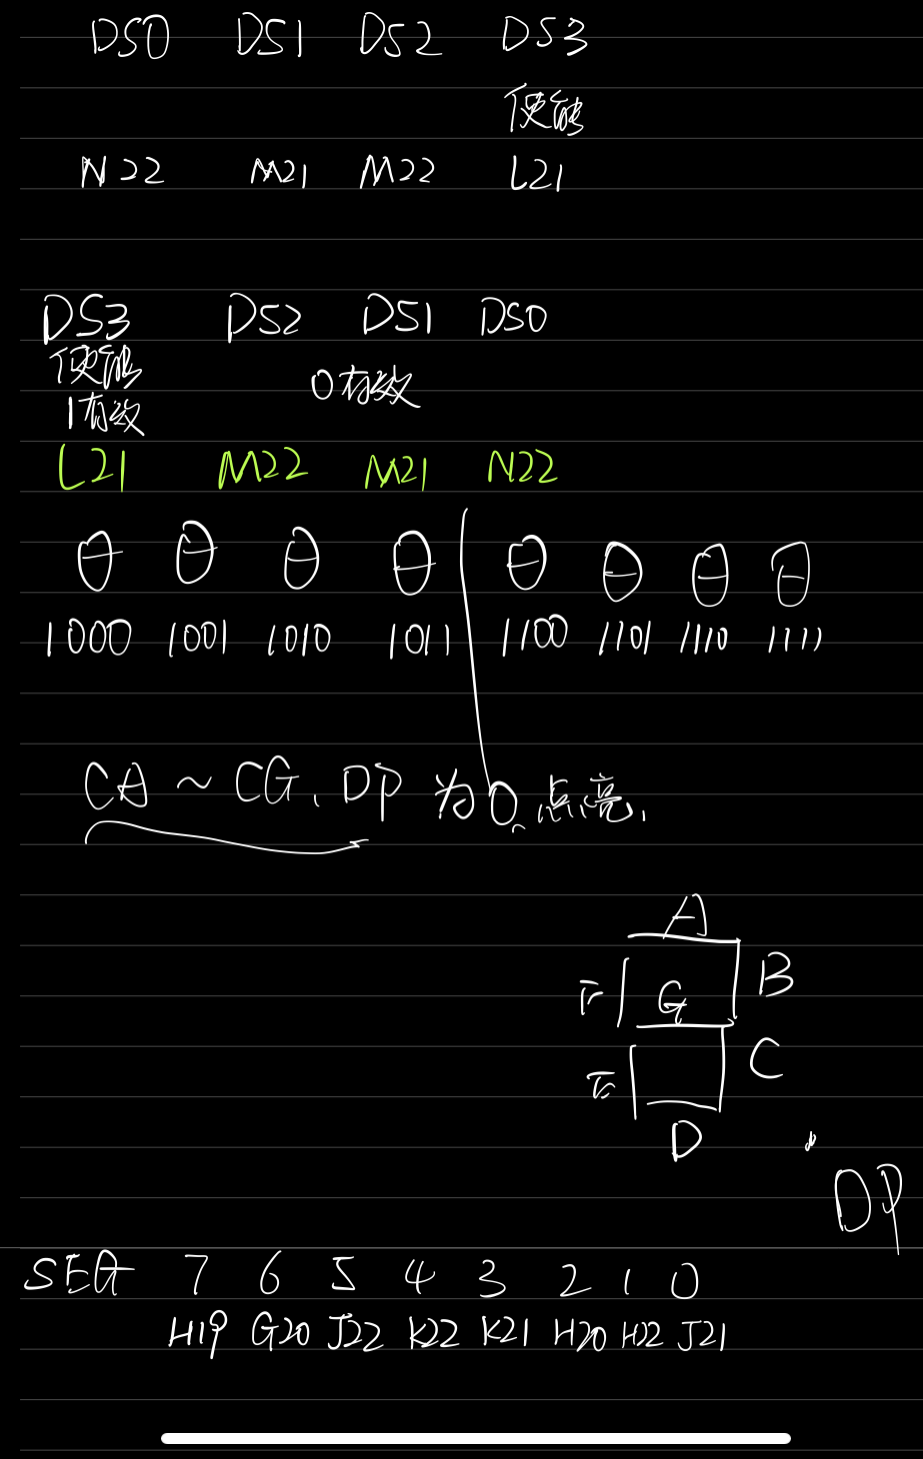 DS0 DS1 DS2 DS3
使能
N22 M21 M22 L21
DS3 DS2 DS1 DS0
使能
0有效
1有效
L21 M22 M21 N22
1000 1001 1010 1011 1100 1101 1110 1111
CA ~ CG、DP 为0点亮.
A
B
F G
C
E
D
DP
SEG 7 6 5 4 3 2 1 0
H19 G20 J22 K22 K21 H20 H22 J21